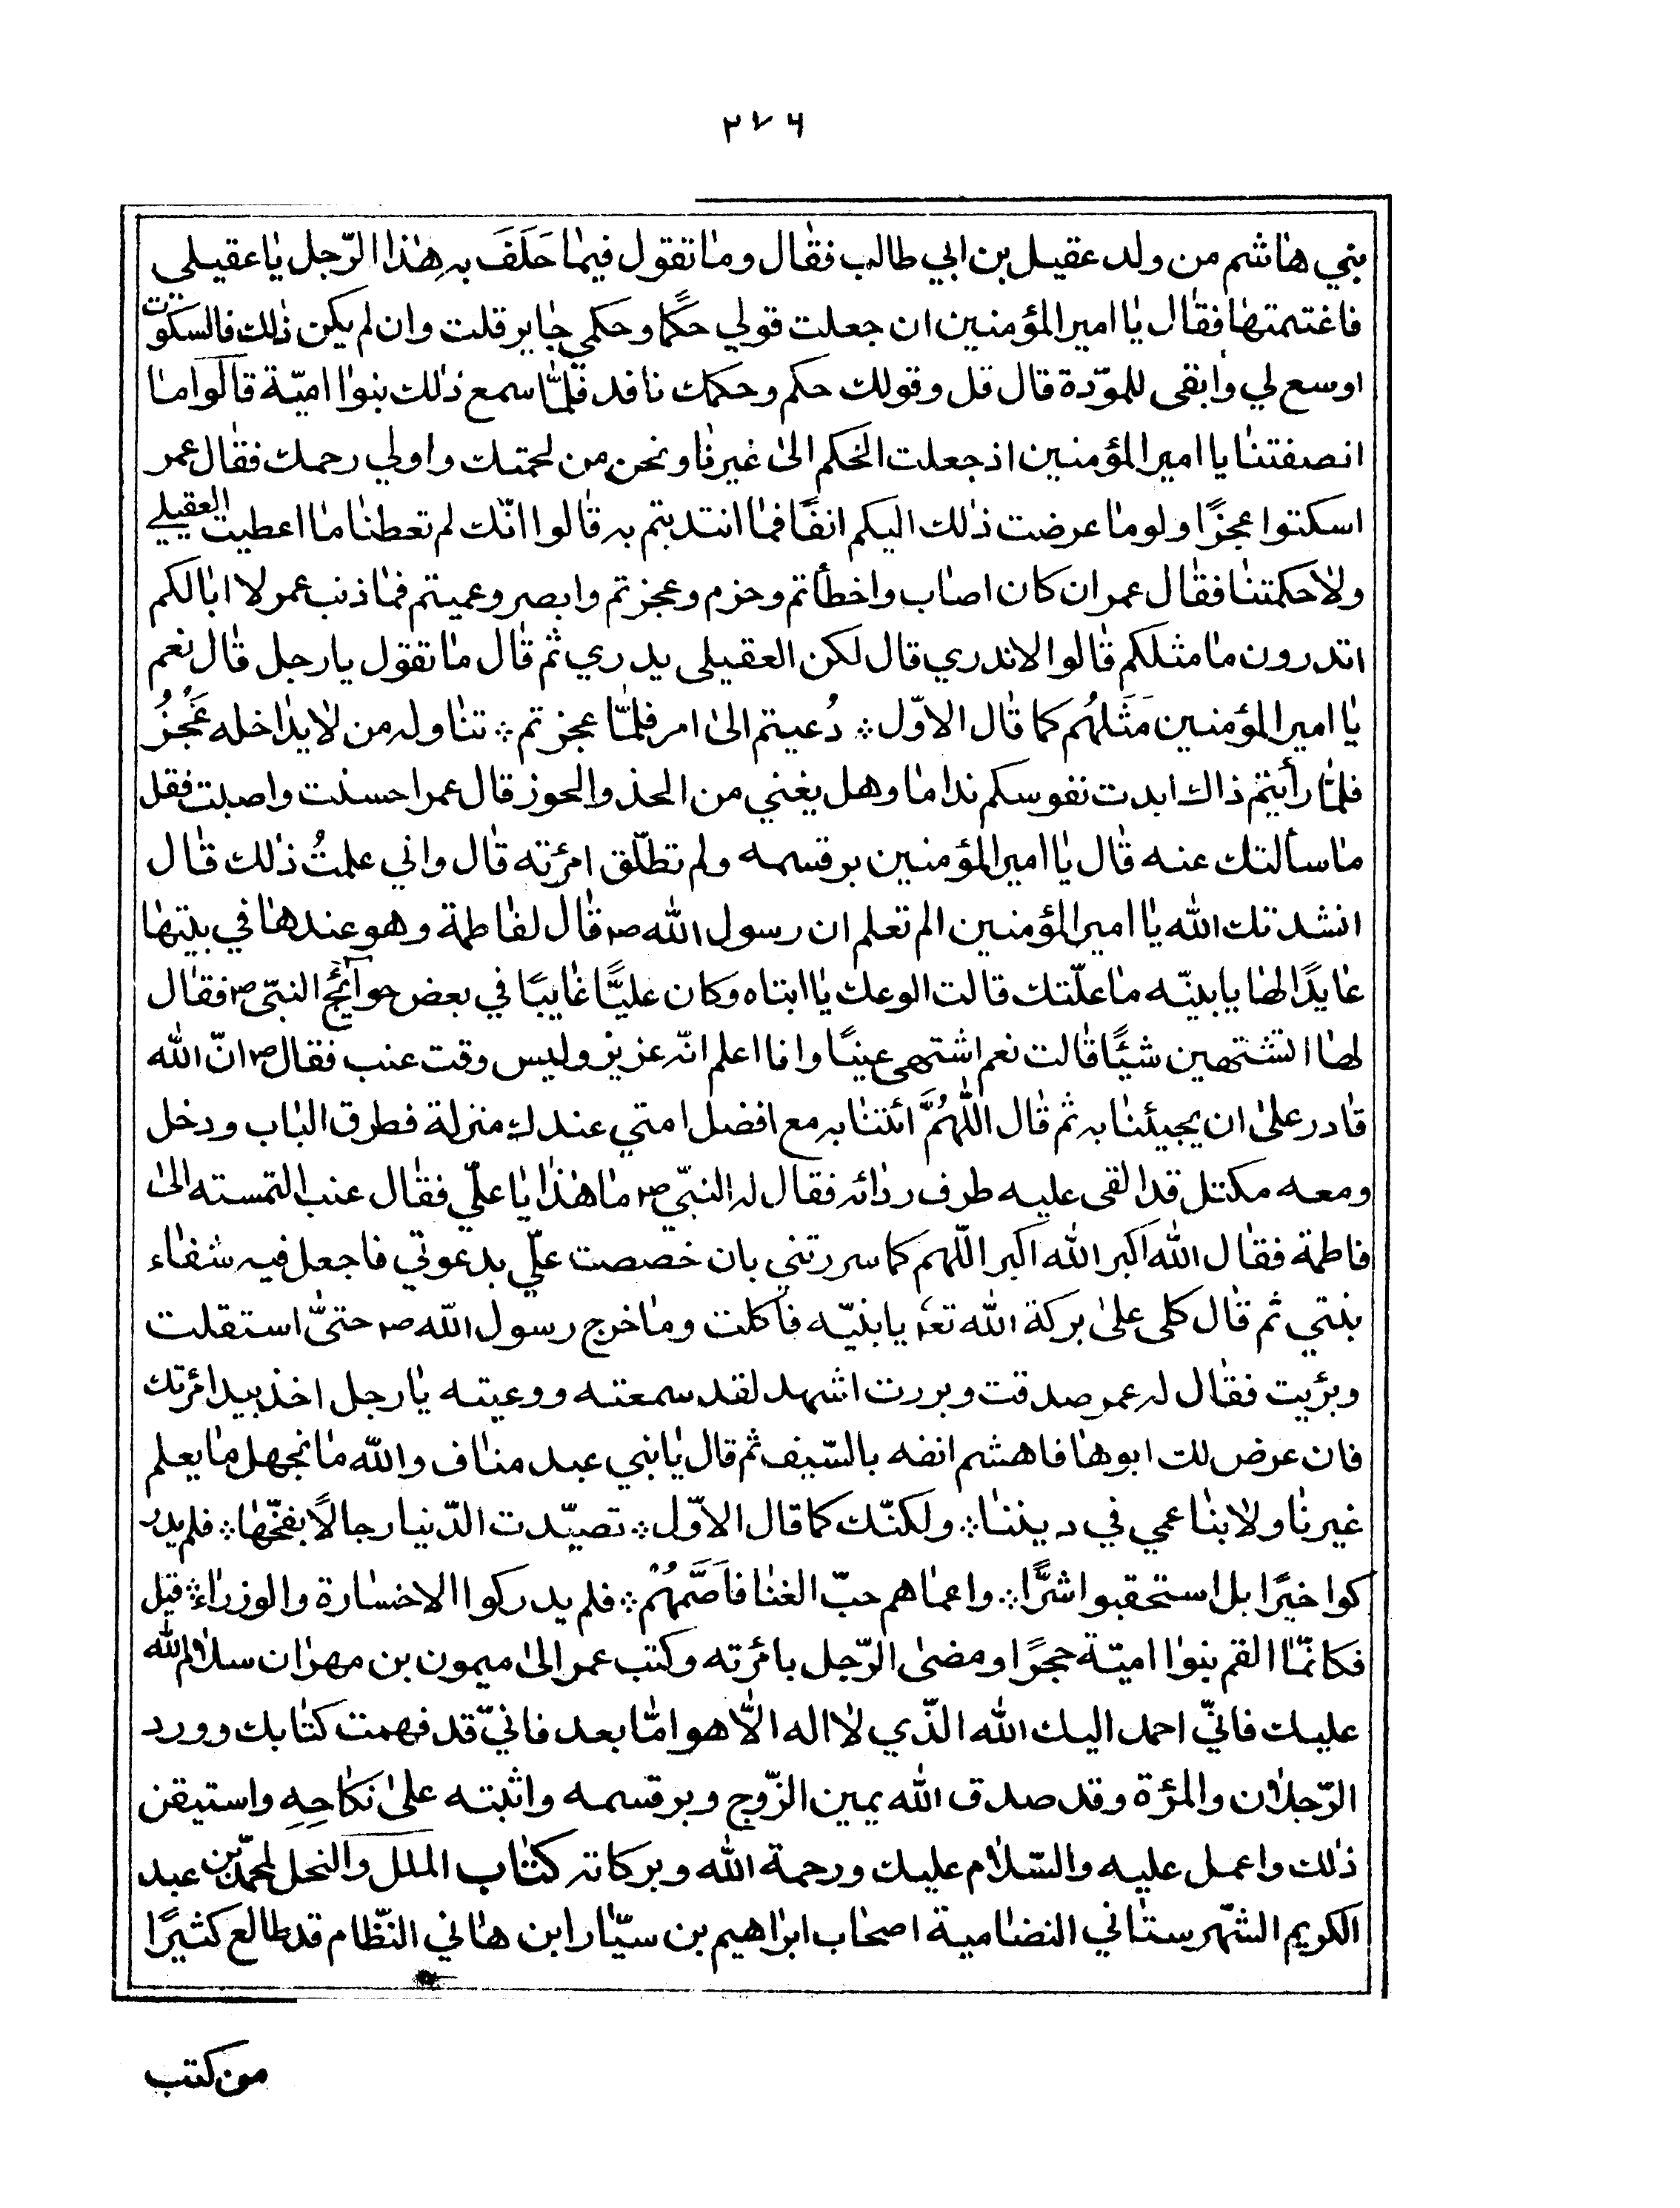 ٢٧٦
بني هاشم من ولد عقيل بن ابي طالب فقال وما تقول فيما حَلَفَ به هذا الرّجل يا عقيلي
فاغتنمتها فقال يا امير المؤمنين ان جعلت قولي حكمًا وحكمي جايز قلت وان لم يكن ذلك فالسكوت
اوسع لي وابقى للمودّة قال قل وقولك حكم وحكمك نافد فلمّا سمع ذلك بنوا اميّة قالوا ما
انصفتنا يا امير المؤمنين اذ جعلت الحكم الى غيرنا ونحن من لحمتك واولي رحمك فقال عمر
اسكتوا عجزًا ولوما عرضت ذلك اليكم انفًا فما انتدبتم به قالوا انّك لم تعطنا ما اعطيت العقيلي
ولا حكمتنا فقال عمر ان كان اصاب واخطأتم وحزم وعجزتم وابصر وعميتم فما ذنب عمر لا ابا لكم
اتدرون ما مثلكم قالوا لا ندري قال لكن العقيلى يدري ثم قال ما تقول يا رجل قال نعم
يا امير المؤمنين مَثَلهُم كما قال الاوّل ؞ دُعيتم الى امر فلمّا عجزتم ؞ تناوله من لا يداخله عَجُزُ
فلمّا رأيتم ذاك ابدت نفوسكم نداما وهل يغني من الحذر والحوز قال عمر احسنت واصبت فقل
ما سألتك عنه قال يا امير المؤمنين بر قسمه ولم تطلّق امرئته قال واني علمتُ ذلك قال
انشدتك الله يا امير المؤمنين الم تعلم ان رسول الله ص قال لفاطمة وهو عندها في بيتها
عايدًا لها يا بنيّه ما علّتك قالت الوعك يا ابتاه وكان عليًّا غايبًا في بعض حوآئج النبيّ ص فقال
لها اتشتهين شيئًا قالت نعم اشتهى عنبًا وانا اعلم انّه عزيز وليس وقت عنب فقال ص انّ الله
قادر على ان يجيئنا به ثم قال اللّهُمَّ ائتنا به مع افضل امتي عندك منزلة فطرق الباب ودخل
ومعه مكتل قد القى عليه طرف ردائه فقال له النبيّ ص ما هذا يا عليّ فقال عنب التمسته الى
فاطمة فقال الله اكبر الله اكبر اللّهم كما سررتني بان خصصت عليّ بدعوتي فاجعل فيه شفاء
بنتي ثم قال كلى على بركة الله تع يا بنيّه فأكلت وما خرج رسول الله ص حتىّ استقلت
وبرُيت فقال له عمر صدقت وبررت اشهد لقد سمعته ووعيته يا رجل اخذ بيد امرئتك
فان عرض لك ابوها فاهشم انفه بالسّيف ثم قال يا بني عبد مناف والله ما نجهل ما يعلم
غيرنا ولا بنا عمي في ديننا ؞ ولكنّك كما قال الاوّل ؞ تصيّدت الدّنيا رجالًا بفخّها ؞ فلم يدر
كوا خيرًا بل استحقبوا شرًّا ؞ واعماهم حبّ الغنا فاَصَمَّهُمْ ؞ فلم يدركوا الا خسارة والوزراء ؞ قيل
فكانمّا القم بنوا اميّة حجرًا ومضى الرّجل بامرئته وكتب عمر الى ميمون بن مهران سلام الله
عليك فانيّ احمد اليك الله الذّي لا اله الّا هو امّا بعد فانيّ قد فهمت كتابك وورد
الرّجلان والمرئة وقد صدق الله يمين الزّوج وبر قسمه واثبته على نكاحِهِ واستيقن
ذلك واعمل عليه والسّلام عليك ورحمة الله وبركاته كتاب الملل والنحل لمحمّد بن عبد
الكريم الشّهرستاني النضامية اصحاب ابراهيم بن سيّار ابن هاني النّظام قد طالع كثيرًا
من كتب